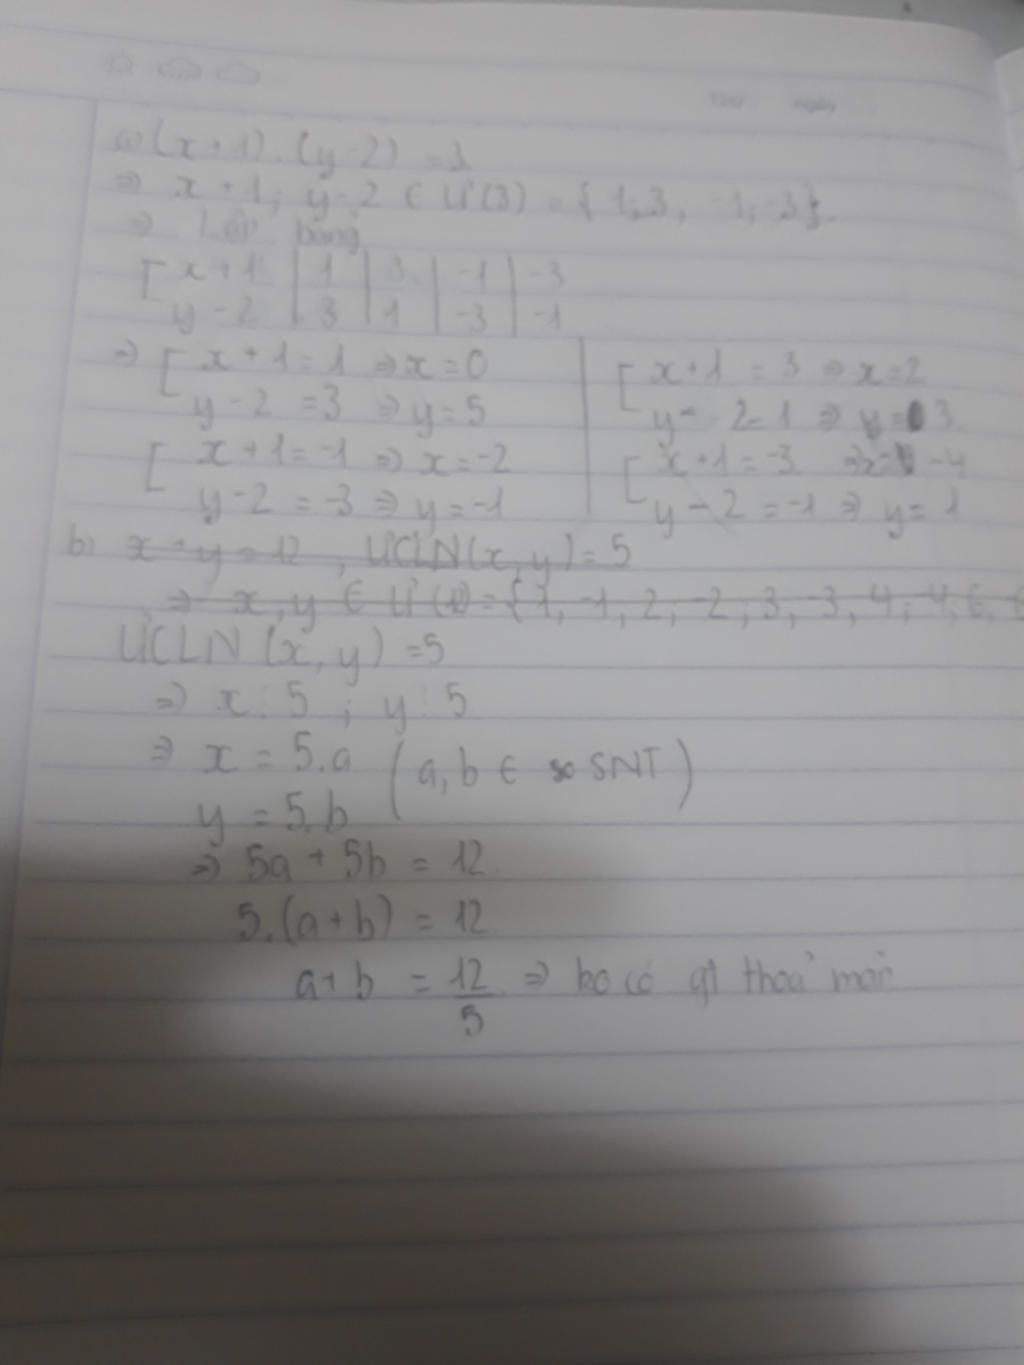 Thứ ngày
a) (x+1).(y-2) = 3
⇒ x+1; y-2 ∈ Ư(3) = {1;3, -1;-3}.
⇒ Lập bảng
[ x+1 | 1 | 3 | -1 | -3
y-2 | 3 | 1 | -3 | -1
⇒ [ x+1=1 ⇒ x=0
y-2 =3 ⇒ y=5
[ x+1=-1 ⇒ x=-2
y-2 = -3 ⇒ y=-1
[ x+1 = 3 ⇒ x=2
y-2=1 ⇒ y= 3
[ x+1=-3 ⇒ x= -4
y-2 =-1 ⇒ y=1
b) x+y=12, ƯCLN(x,y)=5
⇒ x,y ∈ Ư(12)={1,-1,2;-2;3,-3,4;-4;6,
ƯCLN (x,y) =5
⇒ x⋮5 ; y⋮5
⇒ x = 5.a (a,b ∈ SNT)
y = 5.b
⇒ 5a + 5b = 12
5.(a+b) = 12
a+b = 12/5 ⇒ ko có gt thoả mãn